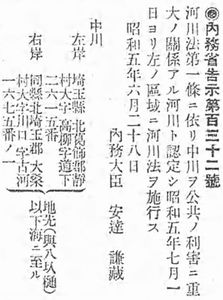 ◉內務省吿示第百三十二號
河川法第一條ニ依リ中川ヲ公共ノ利害ニ重
大ノ關係アル河川ト認定シ昭和五年七月一
日ヨリ左ノ區域ニ河川法ヲ施行ス
昭和五年六月二十八日
內務大臣 安達 謙藏
中川
左岸
埼玉縣北葛飾郡靜
村大字高柳字道下
二六一五番
右岸
同縣北埼玉郡大桑
村大字川口字古河
一六七五番ノ一
地先(與八圦樋)
以下海ニ至ル